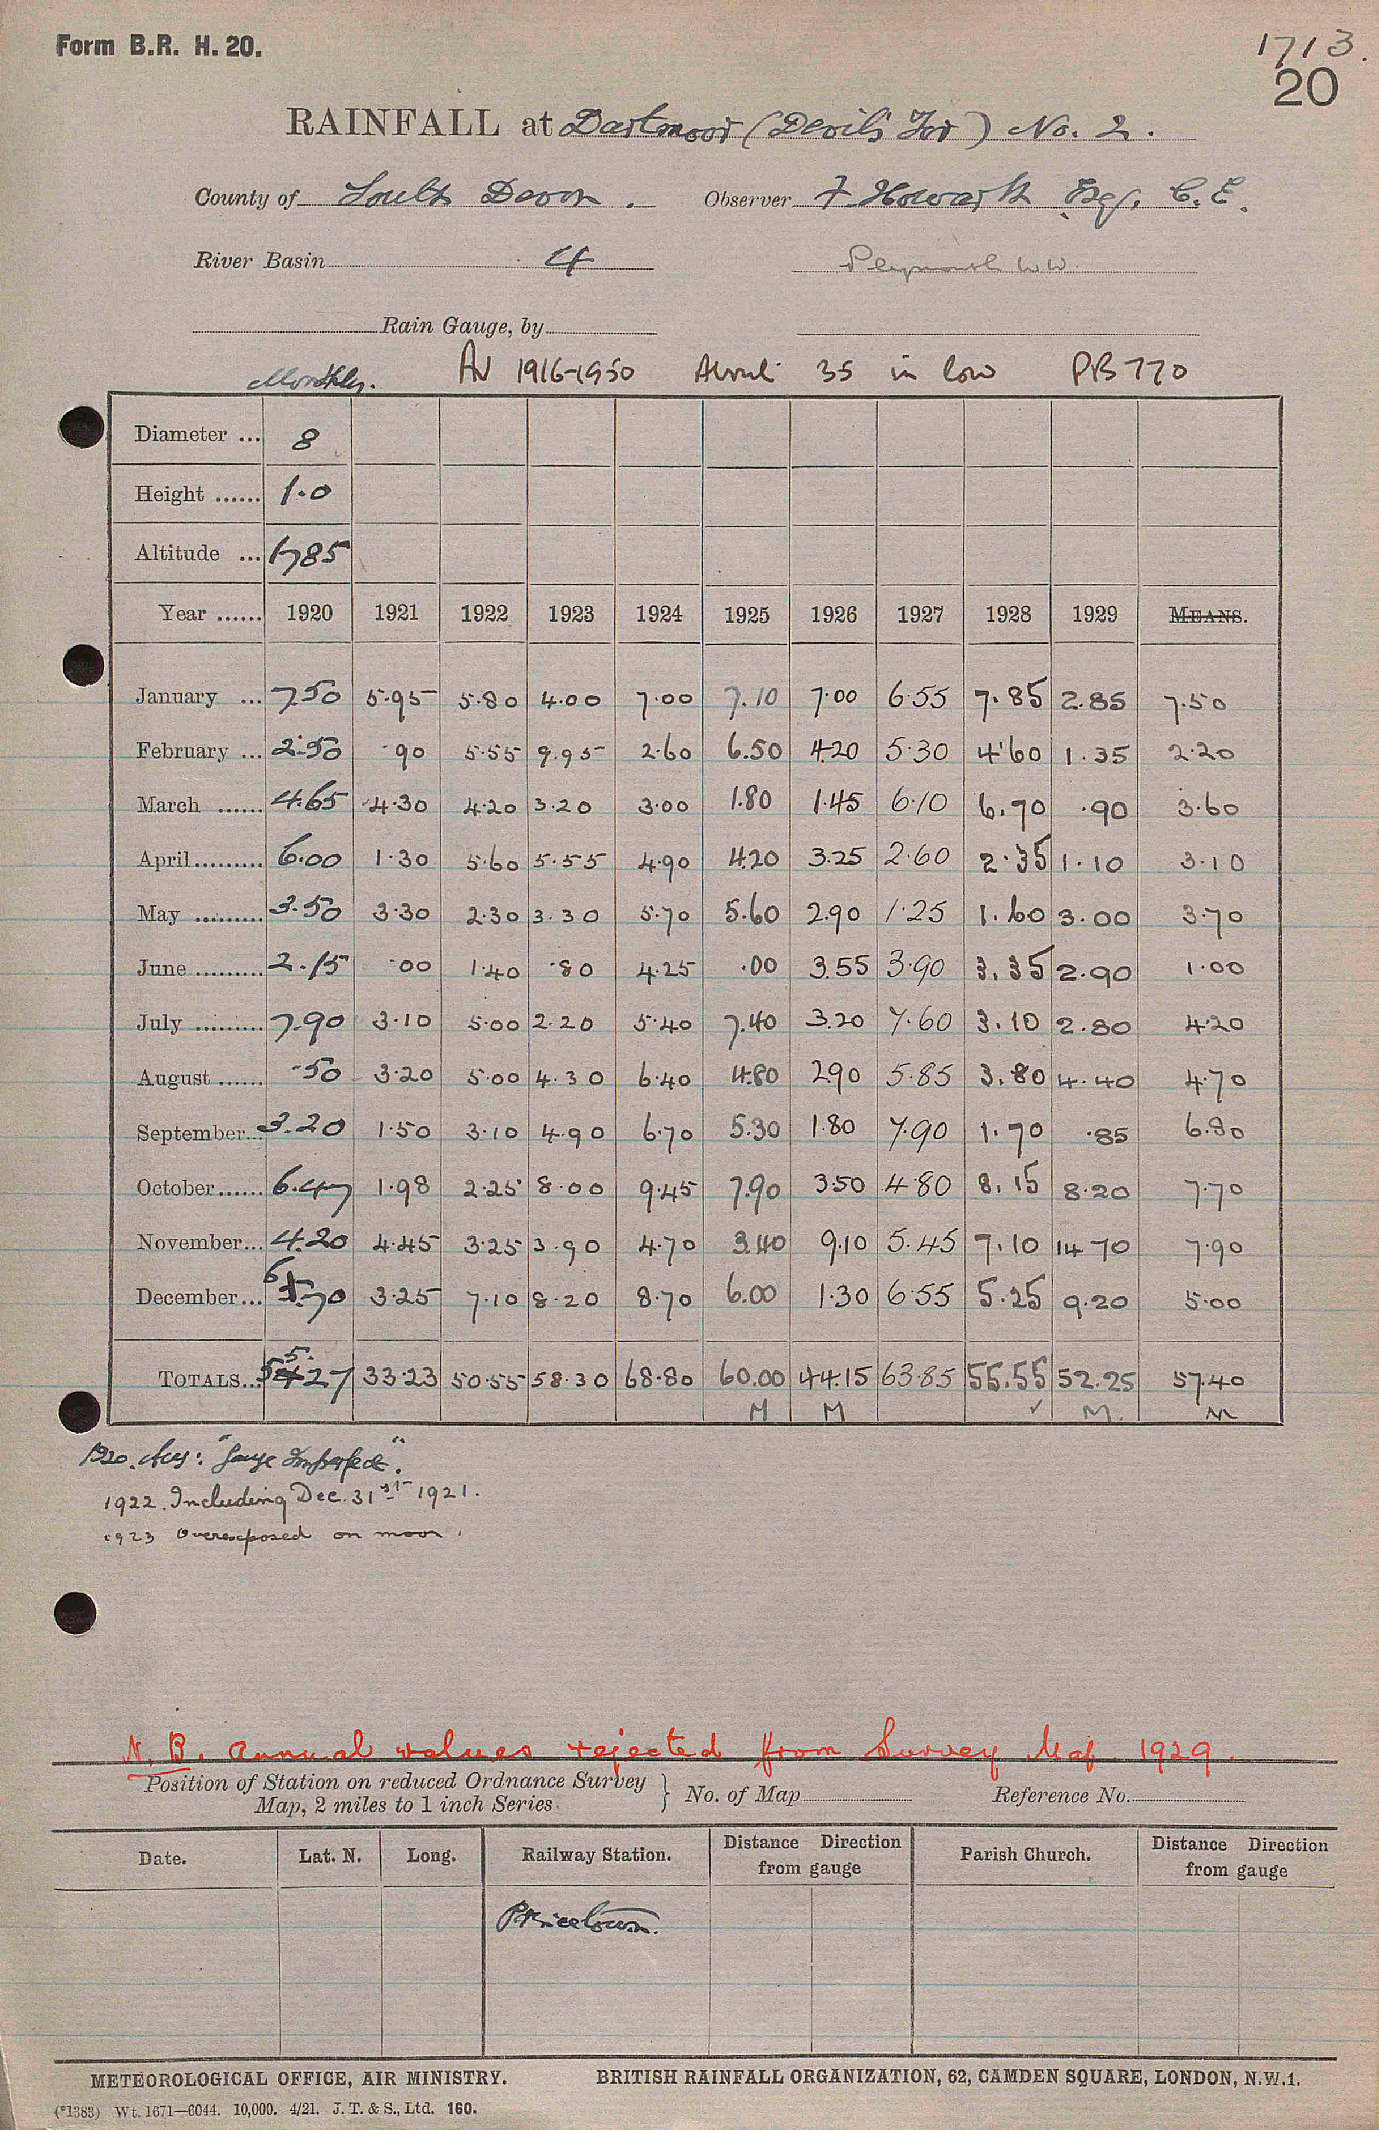 Form B.R. H. 20.
1713.
20
RAINFALL at Dartmoor (Devil's Tor) No. 2.
County of South Devon. Observer F Howarth Esq, C.E.
River Basin 4 Plymouth WW
Rain Gauge, by
Monthly. Av 1916-1950 About 35 in low PB 770
Diameter ... 8
Height ...... 1.0
Altitude ... 1785
Year ...... 1920 1921 1922 1923 1924 1925 1926 1927 1928 1929 MEANS.
January ... 7.50 5.95 5.80 4.00 7.00 7.10 7.00 6.55 7.85 2.85 7.50
February ... 2.50 .90 5.55 9.95 2.60 6.50 4.20 5.30 4.60 1.35 2.20
March ...... 4.65 4.30 4.20 3.20 3.00 1.80 1.45 6.10 6.70 .90 3.60
April ......... 6.00 1.30 5.60 5.55 4.90 4.20 3.25 2.60 2.35 1.10 3.10
May ......... 3.50 3.30 2.30 3.30 5.70 5.60 2.90 1.25 1.60 3.00 3.70
June ......... 2.15 .00 1.40 .80 4.25 .00 3.55 3.90 3.35 2.90 1.00
July ......... 7.90 3.10 5.00 2.20 5.40 7.40 3.20 7.60 3.10 2.80 4.20
August ...... .50 3.20 5.00 4.30 6.40 4.80 2.90 5.85 3.80 4.40 4.70
September... 3.20 1.50 3.10 4.90 6.70 5.30 1.80 7.90 1.70 .85 6.80
October...... 6.47 1.98 2.25 8.00 9.45 7.90 3.50 4.80 8.15 8.20 7.70
November... 4.20 4.45 3.25 3.90 4.70 3.40 9.10 5.45 7.10 14.70 7.90
December... 6.70 3.25 7.10 8.20 8.70 6.00 1.30 6.55 5.25 9.20 5.00
TOTALS... 55.27 33.23 50.55 58.30 68.80 60.00 44.15 63.85 55.55 52.25 57.40
M M ✓ M. M
1920. Aug: "Gauge Imperfect".
1922. Including Dec. 31st 1921.
1923 Overexposed on moor.
N.B. Annual values rejected from Survey Map 1929.
Position of Station on reduced Ordnance Survey Map, 2 miles to 1 inch Series } No. of Map Reference No.
Date. Lat. N. Long. Railway Station. Distance Direction from gauge Parish Church. Distance Direction from gauge
Princetown.
METEOROLOGICAL OFFICE, AIR MINISTRY. BRITISH RAINFALL ORGANIZATION, 62, CAMDEN SQUARE, LONDON, N.W.1.
(*1383) Wt. 1671—6044. 10,000. 4/21. J. T. & S., Ltd. 160.